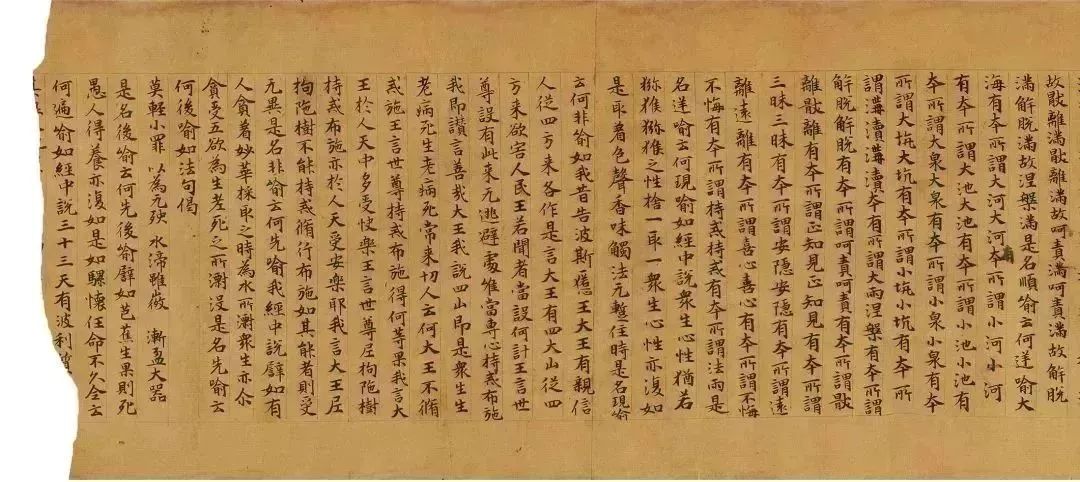 故猒離滿猒離滿故呵責滿呵責滿故解脫
滿解脫滿故涅槃滿是名順喻云何逆喻大
海有夲所謂大河大河有夲所謂小河小河
有夲所謂大池大池有夲所謂小池小池有
夲所謂大泉大泉有夲所謂小泉小泉有夲
所謂大坑大坑有夲所謂小坑小坑有夲所
謂溝瀆溝瀆夲有所謂大雨涅槃有夲所謂
解脫解脫有夲所謂呵責呵責有夲所謂猒
離猒離有夲所謂正知見正知見有夲所謂
三昧三昧有夲所謂安隱安隱有夲所謂遠
離遠離有夲所謂喜心喜心有夲所謂不悔
不悔有夲所謂持戒持戒有夲所謂法雨是
名逆喻云何現喻如經中說衆生心性猶若
猕猴猕猴之性捨一取一衆生心性亦復如
是取著色聲香味觸法无蹔住時是名現喻
云何非喻如我昔告波斯匿王大王有親信
人從四方來各作是言大王有四大山從四
方來欲害人民王若聞者當設何計王言世
尊設有此來无逃避處唯當專心持戒布施
我即讚言善哉大王我說四山即是衆生生
老病死生老病死常來切人云何大王不脩
戒施王言世尊持戒布施得何等果我言大
王於人天中多受快樂王言世尊尼拘陀樹
持戒布施亦於人天受安樂耶我言大王尼
拘陀樹不能持戒脩行布施如其能者則受
无異是名非喻云何先喻我經中說譬如有
人貪著妙華採取之時為水所漂衆生亦尒
貪受五欲為生老死之所漂没是名先喻云
何後喻如法句偈
莫輕小罪 以為无殃 水渧雖微 漸盈大器
是名後喻云何先後喻譬如芭蕉生果則死
愚人得養亦復如是如騾懷任命不久全云
何遍喻如經中說三十三天有波利